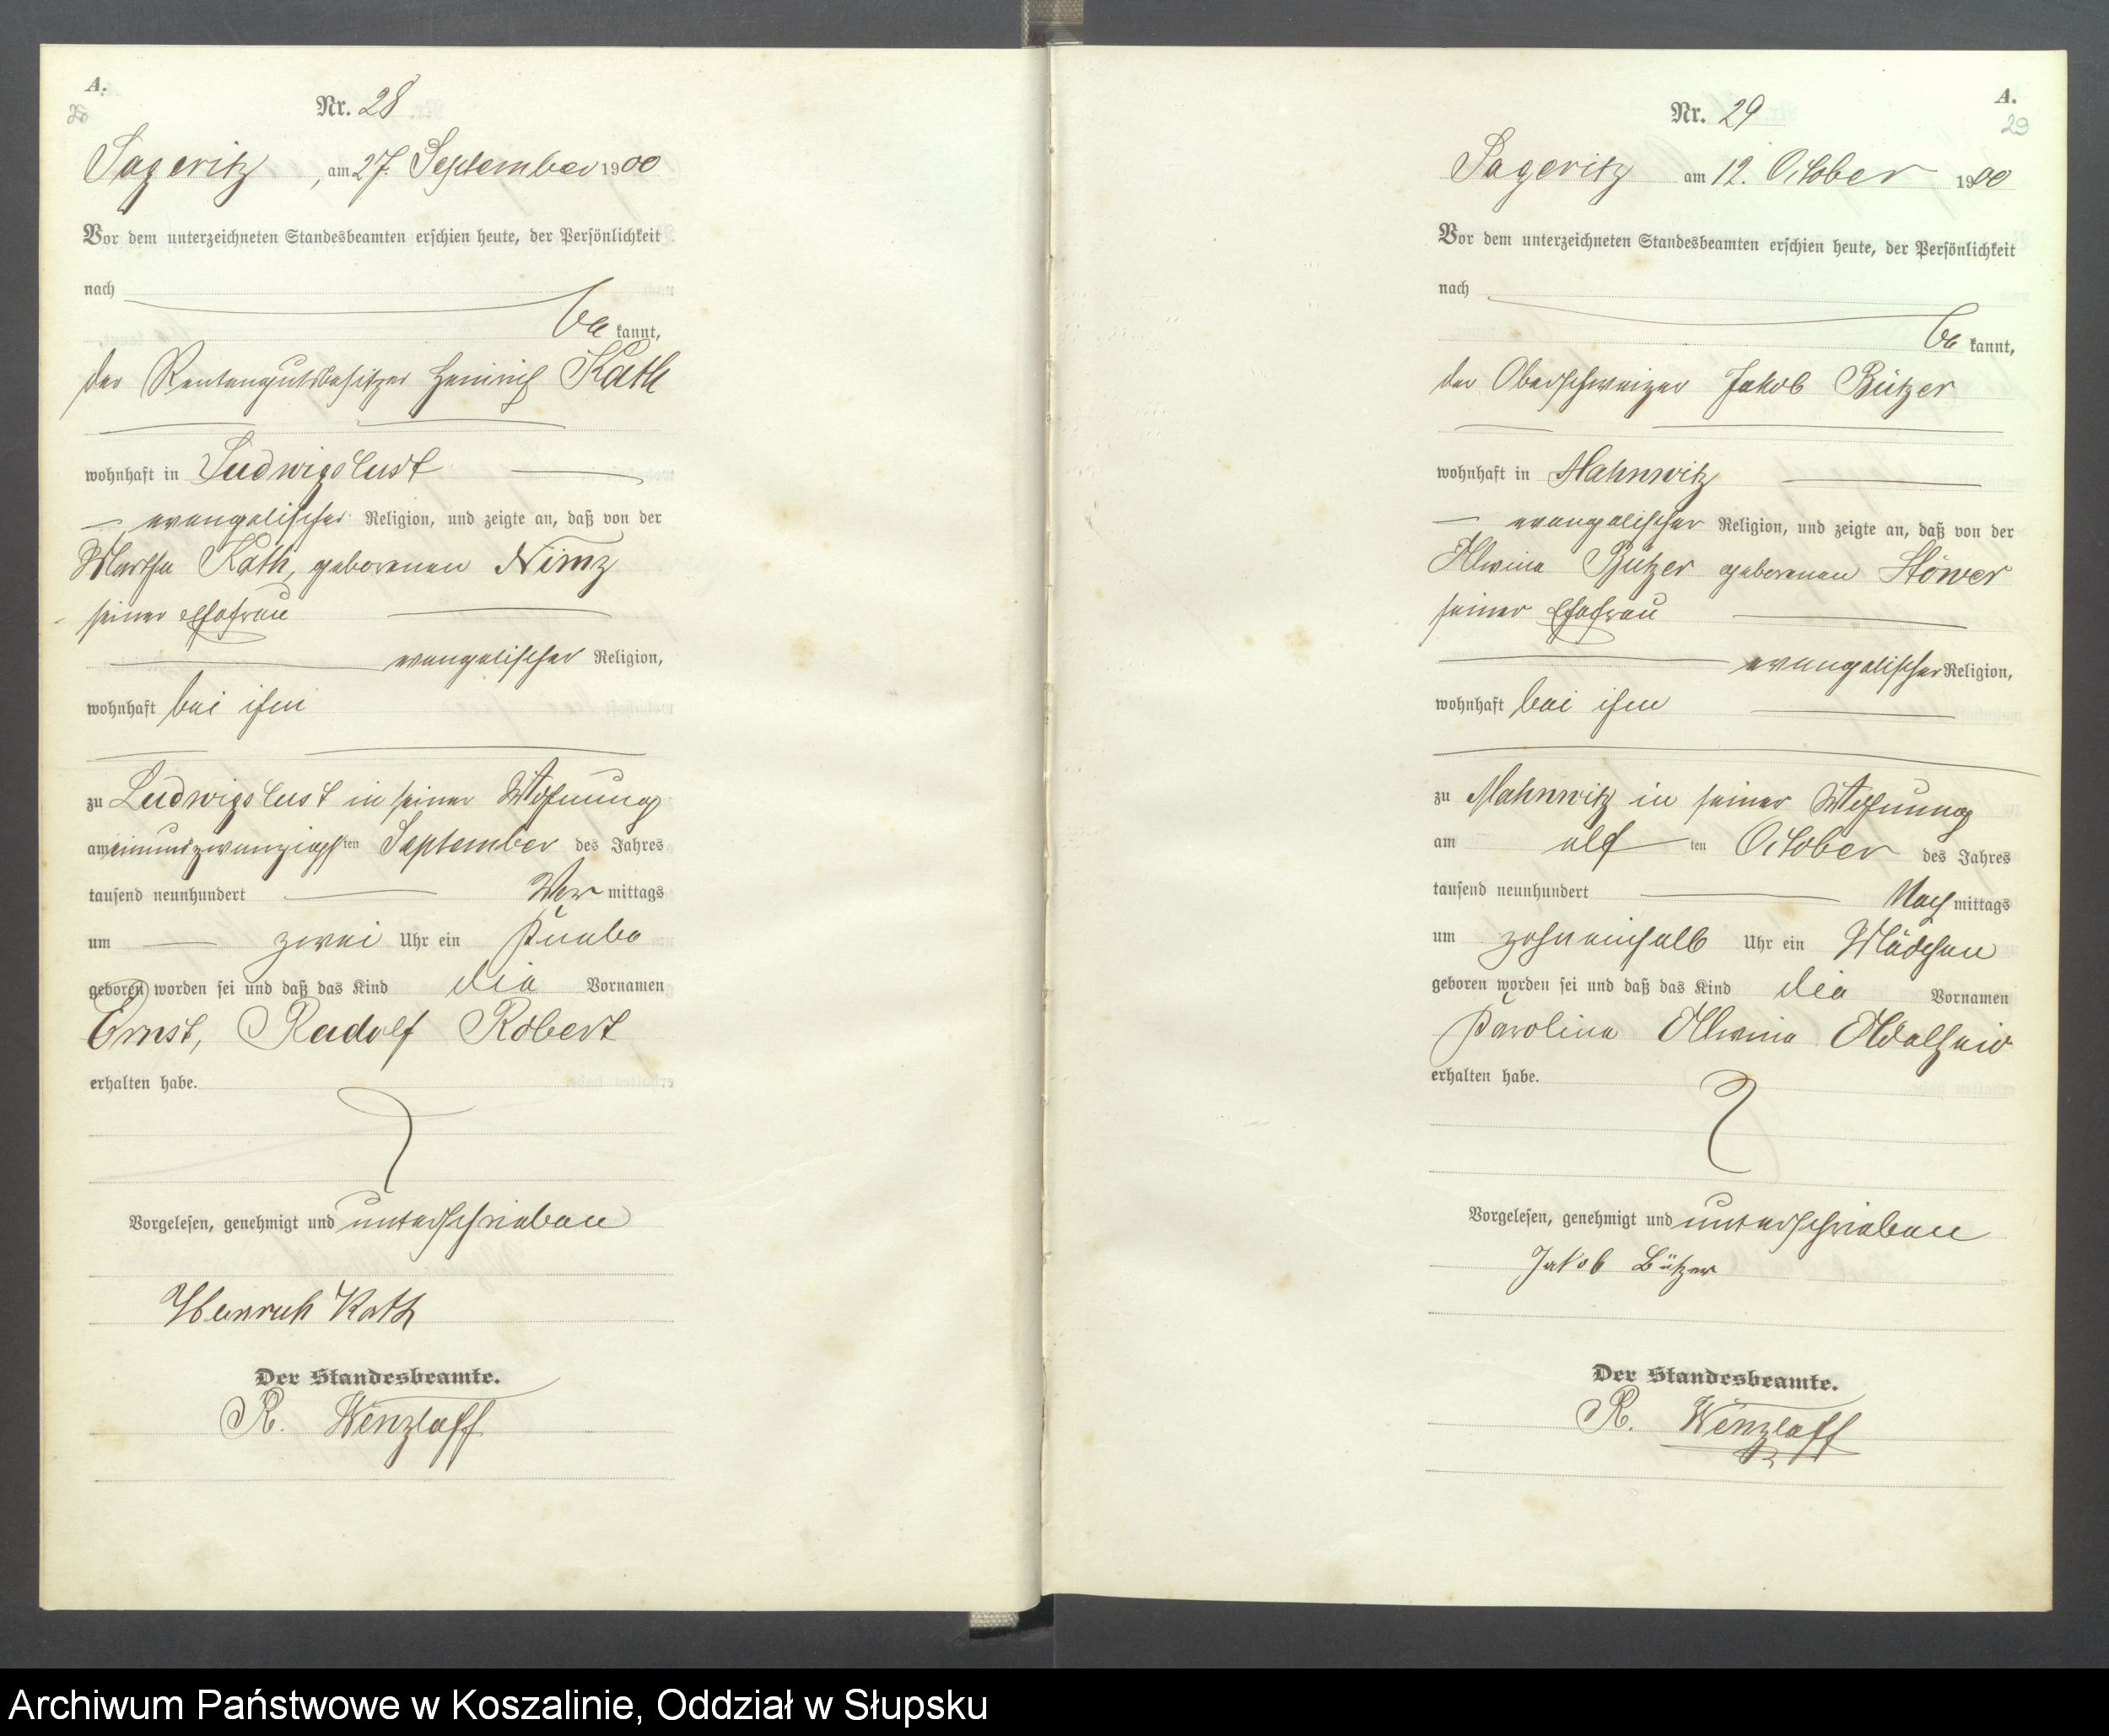 A.
28
Nr. 28
Sageritz, am 27. September 1900
Vor dem unterzeichneten Standesbeamten erschien heute, der Persönlichkeit
nach
be kannt,
der Rentengutsbesitzer Heinrich Kath
wohnhaft in Ludwigslust
evangelischer Religion, und zeigte an, daß von der
Martha Kath, geborenen Nimz
seiner Ehefrau
evangelischer Religion,
wohnhaft bei ihm
zu Ludwigslust in seiner Wohnung
am einundzwanzigsten September des Jahres
tausend neunhundert Vor mittags
um zwei Uhr ein Knabe
geboren worden sei und daß das Kind die Vornamen
Ernst, Rudolf Robert
erhalten habe.
Vorgelesen, genehmigt und unterschrieben
Heinrich Kath
Der Standesbeamte.
R. Wenzlaff
A.
29
Nr. 29
Sageritz am 12. October 1900
Vor dem unterzeichneten Standesbeamten erschien heute, der Persönlichkeit
nach
be kannt,
der Oberschweizer Jakob Bützer
wohnhaft in Mahnwitz
evangelischer Religion, und zeigte an, daß von der
Alwine Bützer geborenen Stöwer
seiner Ehefrau
evangelischer Religion,
wohnhaft bei ihm
zu Mahnwitz in seiner Wohnung
am elf ten October des Jahres
tausend neunhundert Nach mittags
um zehneinhalb Uhr ein Mädchen
geboren worden sei und daß das Kind die Vornamen
Karoline Alwine Adelheid
erhalten habe.
Vorgelesen, genehmigt und unterschrieben
Jakob Bützer
Der Standesbeamte.
R. Wenzlaff
Archiwum Państwowe w Koszalinie, Oddział w Słupsku